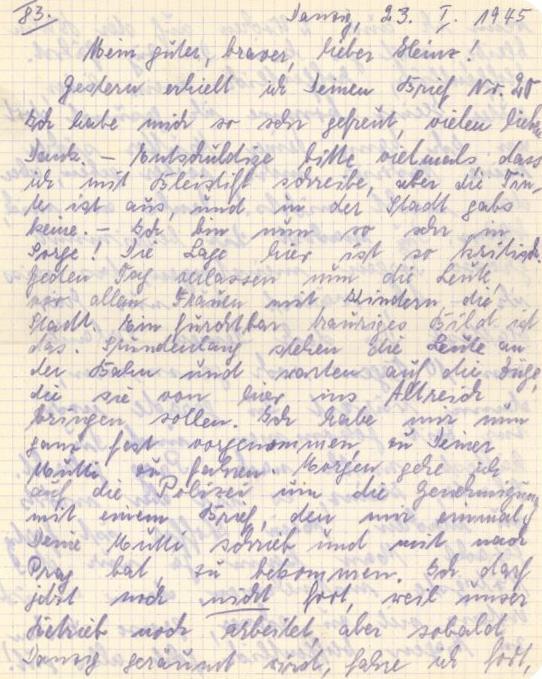 83.
Danzig, 23. I. 1945
Mein guter, braver, lieber Heinz!
Gestern erhielt ich Deinen Brief Nr. 20
Ich habe mich so sehr gefreut, vielen lieben
Dank. – Entschuldige bitte vielmals dass
ich mit Bleistift schreibe, aber die Tin-
te ist aus, und in der Stadt gabs
keine. – Ich bin nun so sehr in
Sorge! Die Lage hier ist so kritisch.
Jeden Tag verlassen nun die Leute,
vor allem Frauen mit Kindern die
Stadt. Ein furchtbar trauriges Bild ist
das. Stundenlang stehen die Leute an
der Bahn und warten auf die Züge,
die sie von hier ins Altreich
bringen sollen. Ich habe mir nun
ganz fest vorgenommen, zu Deiner
Mutti zu fahren. Morgen gehe ich
auf die Polizei um die Genehmigung
mit einem Brief, den mir einmal
Deine Mutti schrieb und mit nach
Prag bat, zu bekommen. Ich darf
jetzt noch nicht fort, weil unser
Betrieb noch arbeitet, aber sobald
Danzig geräumt wird, fahre ich fort,